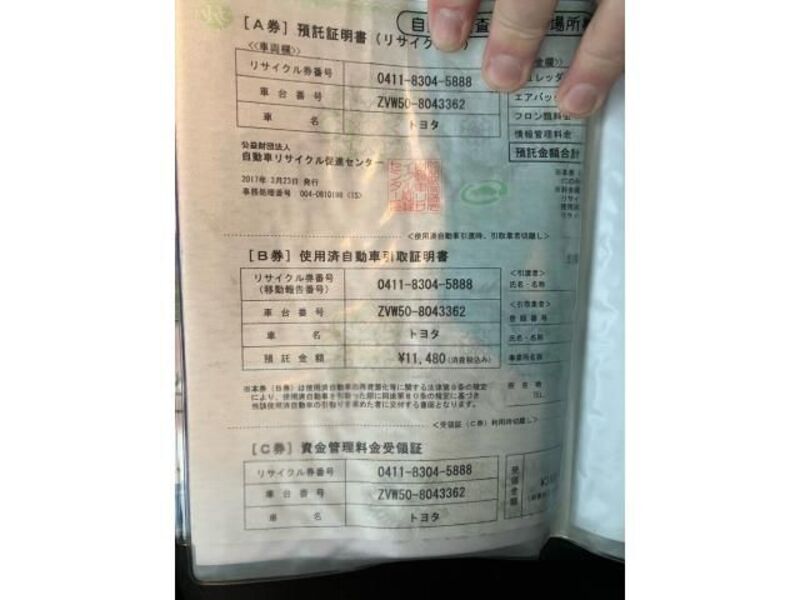 [A券] 預託証明書 (リサイク
<<車両欄>>
リサイクル券番号 0411-8304-5888
車台番号 ZVW50-8043362
車名 トヨタ
公益財団法人
自動車リサイクル促進センター
2017年 3月23日 発行
エアバッ
フロン類料金
情報管理料金
預託金額合計
<使用済自動車引渡時、引取業者切離し>
[B券] 使用済自動車引取証明書
リサイクル券番号 (移動報告番号) 0411-8304-5888
車台番号 ZVW50-8043362
車名 トヨタ
預託金額 ¥11,480(消費税込み)
<引渡者>
氏名・名称
<引取業者>
登録番号
氏名・名称
事業所名称
所在地
TEL
※本券(B券)は使用済自動車の再資源化等に関する法律第9条の規定
により、使用済自動車を引取った際に同法第80条の規定に基づき
当該使用済自動車の引取りを求めた者に交付する書面となります。
<受領証(C券)利用時切離し>
[C券] 資金管理料金受領証
リサイクル券番号 0411-8304-5888
車台番号 ZVW50-8043362
車名 トヨタ
受領金額